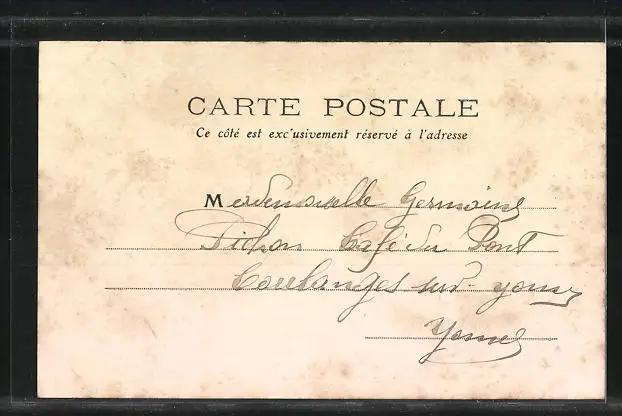 CARTE POSTALE
Ce côté est exc'usivement réservé à l'adresse
Mademoiselle Germaine
Pichon Café du Pont
Coulanges sur-yonne
Yonne